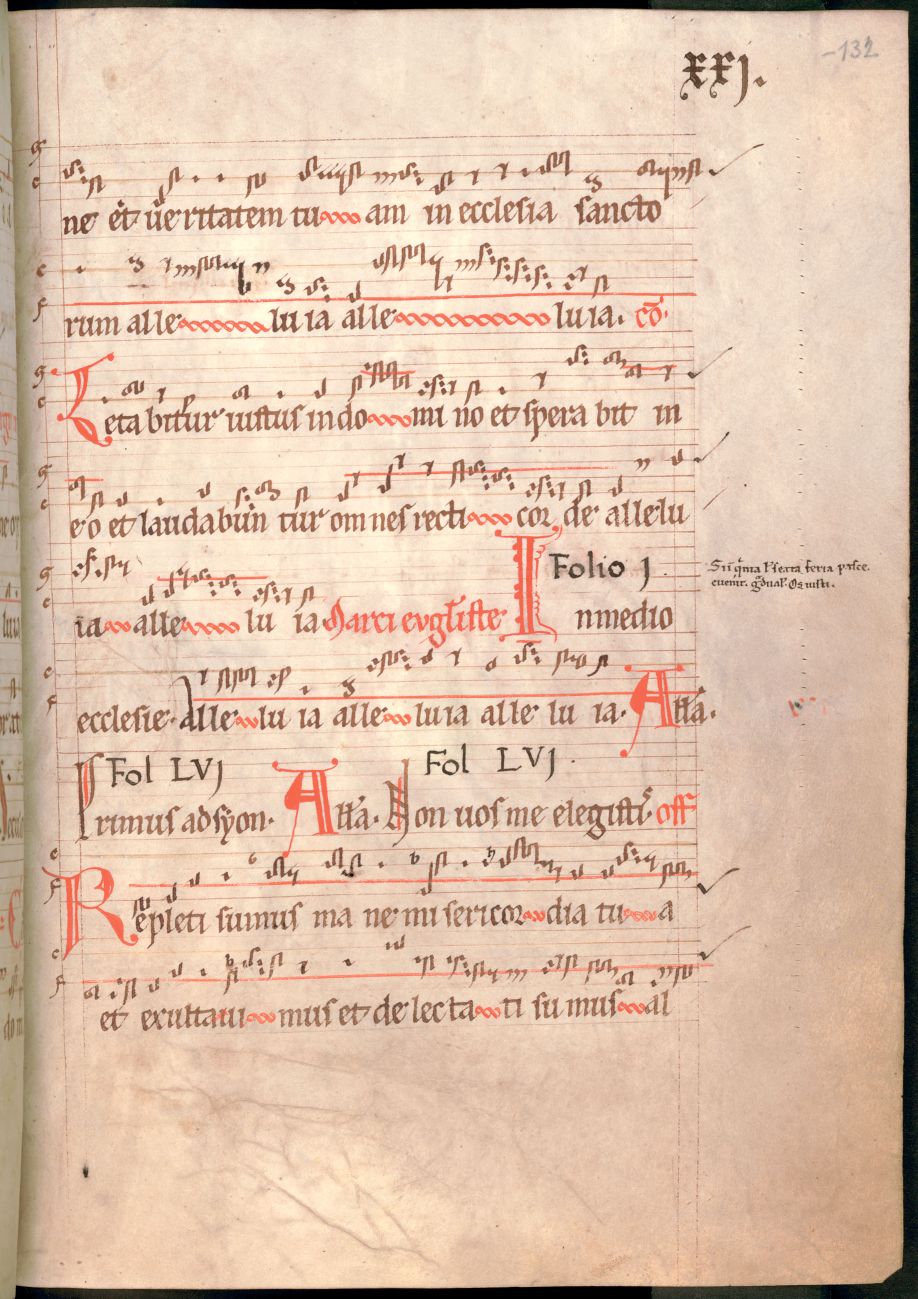 -132
xxj.
ne et ueritatem tu am in ecclesia sancto
rum alle lu ia alle lu ia. cō.
Leta bitur iustus in do mi no et spera bit in
eo et laudabun tur om nes recti cor de allelu
Folio j.
ia alle lu ia Marci evgliste Inmedio
ecclesie. alle lu ia alle lu ia alle lu ia. Alla.
Fol LVj Fol LVj.
Primus ad syon. Alla. Non uos me elegisti. off
Repleti sumus ma ne mi sericor dia tu a
et exultaui mus et de lec ta ti su mus al